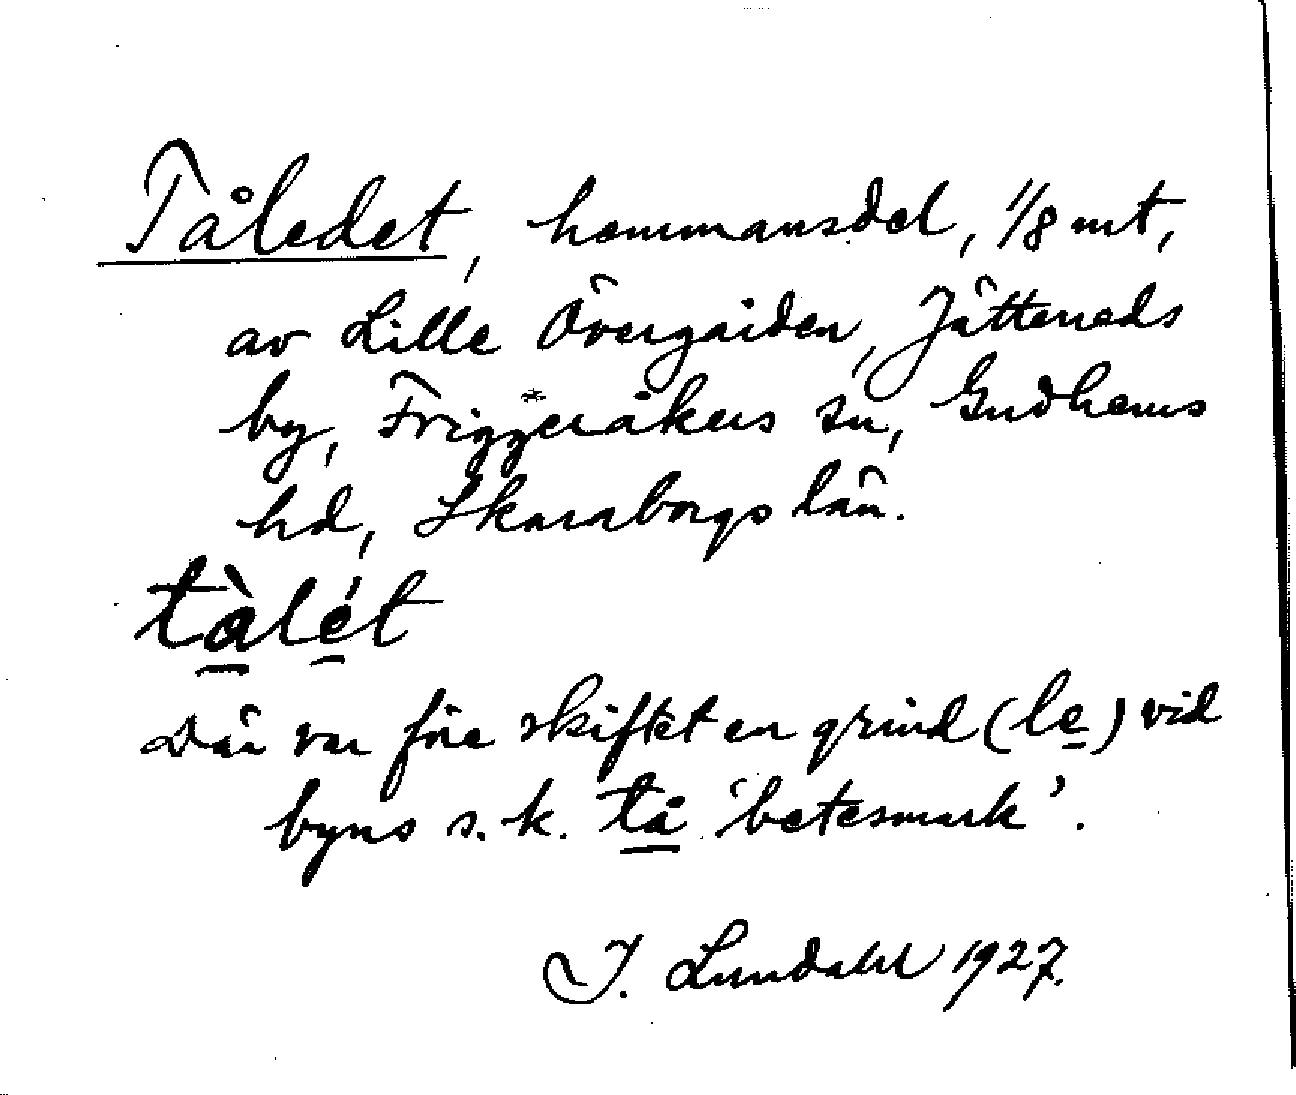 Tåledet, hemmansdel, 1/8 mt,
av Lille Övergården, Jätteneds
by, Friggeråkers sn, Gudhems
hd, Skaraborgs län.
tàlét
Där var före skiftet en grind (le) vid
byns s.k. tå 'betesmark'.
I. Lundahl 1927.